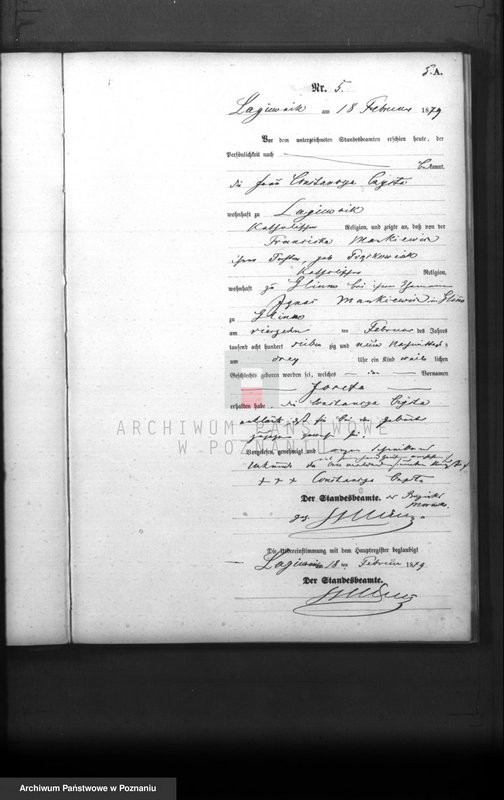 5. A.
Nr. 5.
Lagiewnik am 18 Februar 1879
Vor dem unterzeichneten Standesbeamten erschien heute, der
Persönlichkeit nach
bekannt,
die Frau Constancya Czysta
wohnhaft zu Lagiewnik
Katholischer Religion, und zeigte an, daß von der
Franziska Markiewicz
ihrer Tochter, geb
Katholischer Religion,
wohnhaft zu Glinno bei ihrem Ehemann
Ignac Markiewicz in Glinno
zu Glinno
am vierzehn ten Februar des Jahres
tausend acht hundert sieben zig und neun Nachmittags
um drey Uhr ein Kind weib lichen
Geschlechts geboren worden sei, welches den Vornamen
Josefa
erhalten habe, die Constancya Czysta
erklärt daß sie bei der Geburt
zugegen gewesen sei.
Vorgelesen, genehmigt und wegen
+ + + Constancya Czysta
Der Standesbeamte.
Die Uebereinstimmung mit dem Hauptregister beglaubigt
Lagiewnik 18 ten Februar 1879
Der Standesbeamte.
ARCHIWUM PAŃSTWOWE
W POZNANIU
Archiwum Państwowe w Poznaniu